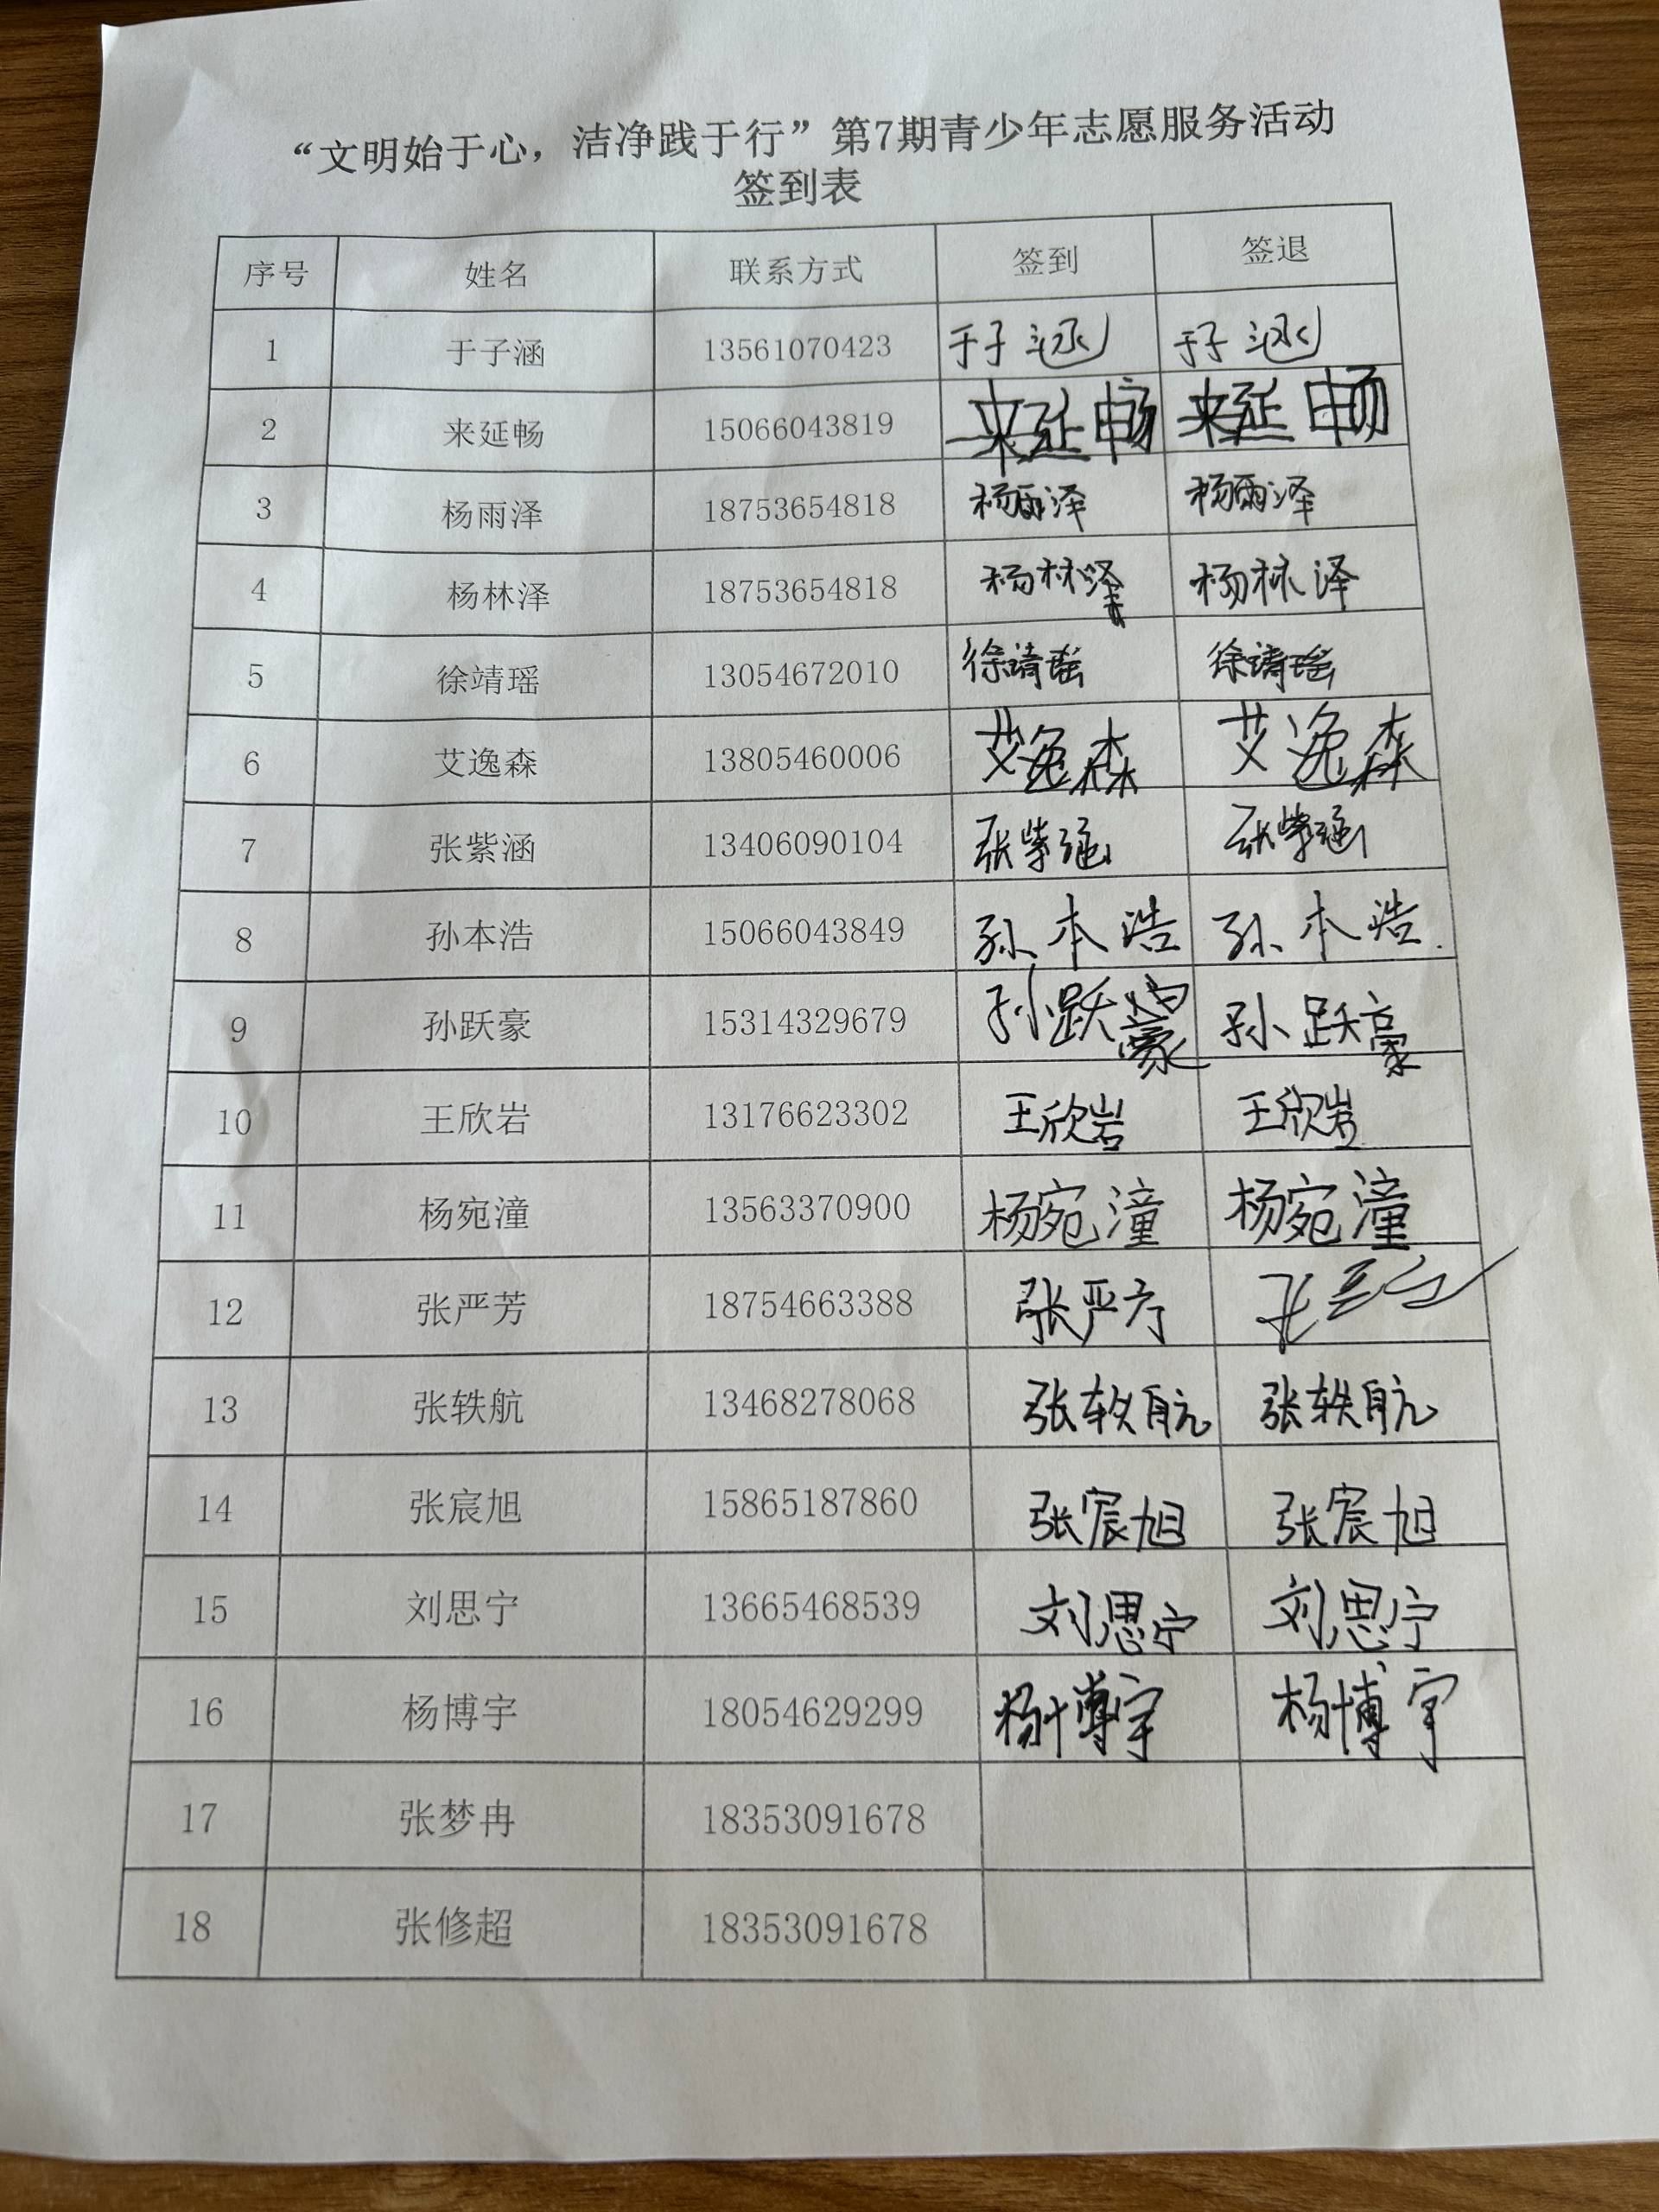 “文明始于心，洁净践于行”第7期青少年志愿服务活动
签到表
序号 姓名 联系方式 签到 签退
1 于子涵 13561070423 于子涵 于子涵
2 来延畅 15066043819 来延畅 来延畅
3 杨雨泽 18753654818 杨雨泽 杨雨泽
4 杨林泽 18753654818 杨林泽 杨林泽
5 徐靖瑶 13054672010 徐靖瑶 徐靖瑶
6 艾逸森 13805460006 艾逸森 艾逸森
7 张紫涵 13406090104 张紫涵 张紫涵
8 孙本浩 15066043849 孙本浩 孙本浩
9 孙跃豪 15314329679 孙跃豪 孙跃豪
10 王欣岩 13176623302 王欣岩 王欣岩
11 杨宛潼 13563370900 杨宛潼 杨宛潼
12 张严芳 18754663388 张严芳 张
13 张轶航 13468278068 张轶航 张轶航
14 张宸旭 15865187860 张宸旭 张宸旭
15 刘思宁 13665468539 刘思宁 刘思宁
16 杨博宇 18054629299 杨博宇 杨博宇
17 张梦冉 18353091678
18 张修超 18353091678